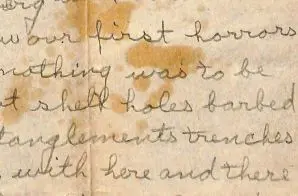 w our first horrors
nothing was to be
at shell holes barbed
tanglements trenches
with here and there